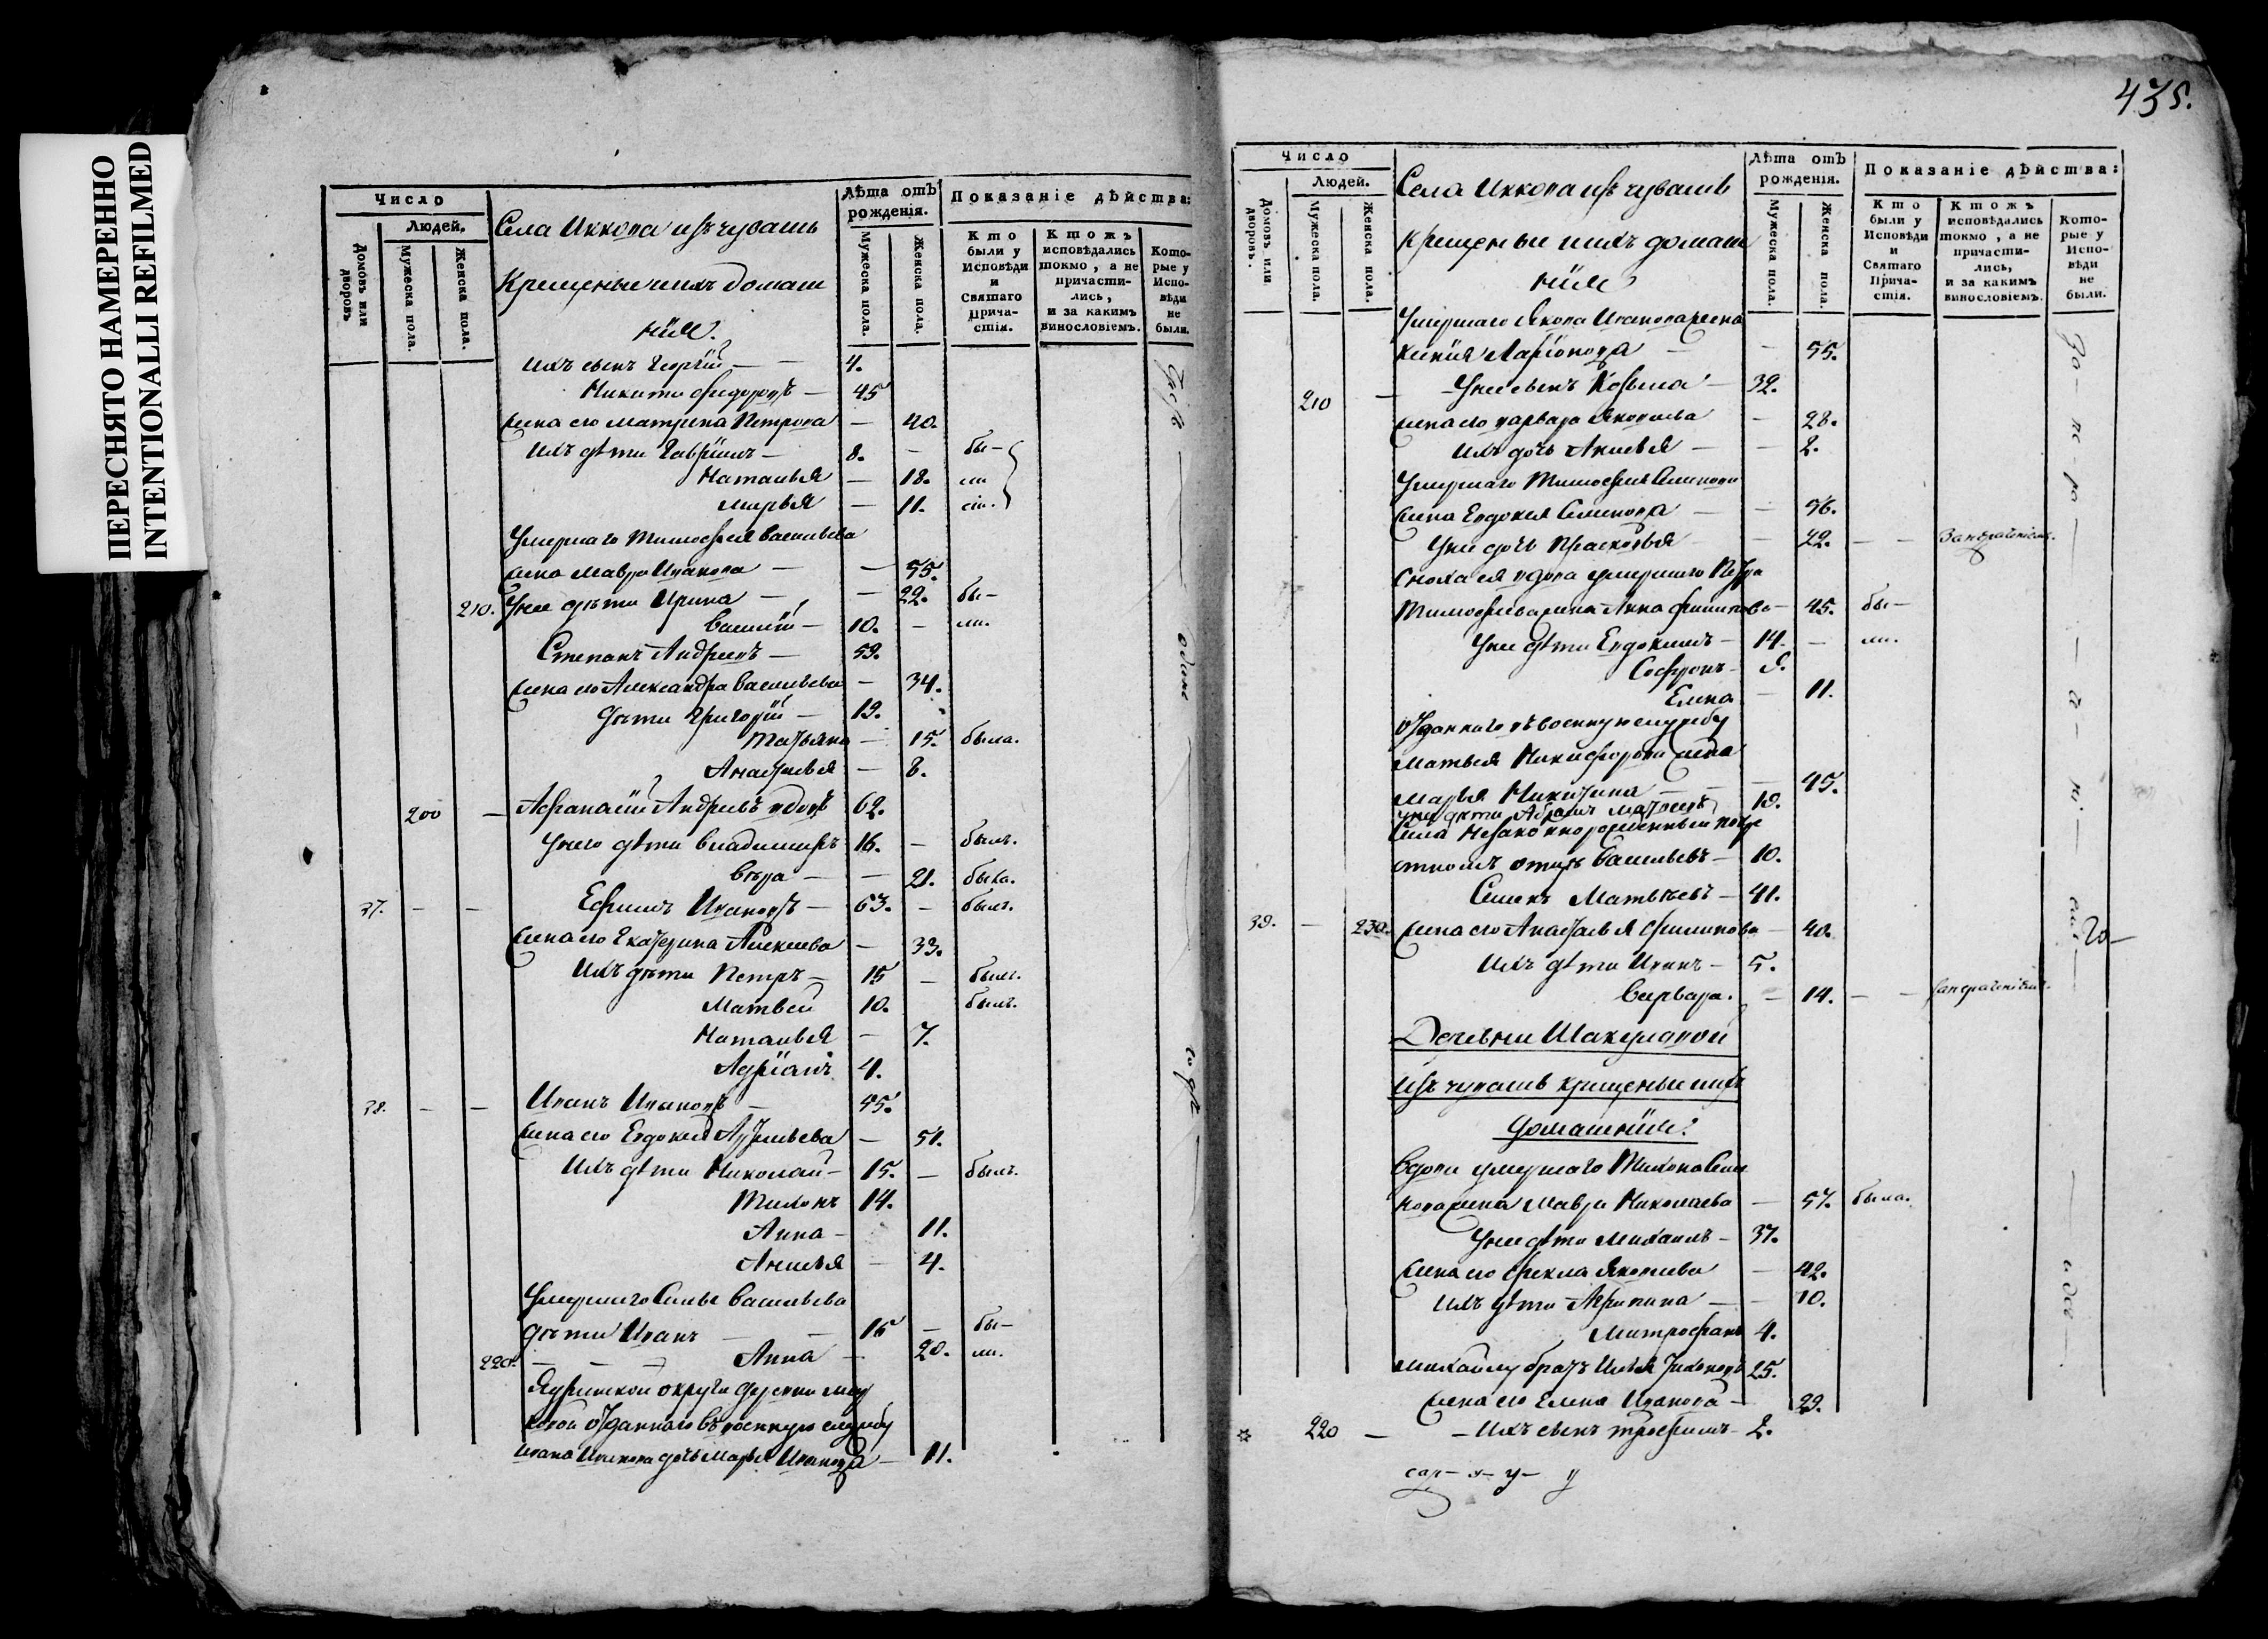 ПЕРЕСНЯТО НАМЕРЕННО
INTENTIONALLI REFILMED
Число
Людей.
Домовъ или дворовъ
Мужеска пола.
Женска пола.
Села Иккова изъ чувашъ
Крещеные и ихъ домаш
нiи.
Лѣта отъ рожденiя.
Мужеска пола.
Женска пола.
Показанiе дѣйства:
Кто были у Исповѣди и Святаго Прича-стiя.
Ктожъ исповѣдались токмо, а не причасти-лись, и за какимъ винословiемъ.
Кото-рые у Испо-вѣди не были.
ихъ сынъ Георгiй — 4.
Никита Федоровъ — 45
жена его Матрена Петрова — 40.
ихъ дѣти Гаврiилъ — 8. — бы-
Наталья — 18. ли
Марья — 11.
Умершаго Тимофея Васильева
жена Мавра Иванова — — 55.
210. У нее дѣти Ирина — — 22. бы-
Василiй — 10. — ли.
Степанъ Андреевъ — 59.
жена его Александра Васильева — 34.
дѣти Григорiй — 19.
Татьяна — 15. была.
Анастасья — 8.
200 — Афанасiй Андреевъ вдовъ 62.
У него дѣти Владимиръ 16. — былъ.
Вѣра — — 21. была.
37. — — Ефимъ Ивановъ — 63. — былъ.
жена его Екатерина Алексеева — 39.
ихъ дѣти Петръ — 15 — былъ.
Матвей 10. былъ.
Наталья — 7.
Адрiанъ 4.
38. — — Иванъ Ивановъ — 45.
жена его Евдокия — 51.
ихъ дѣти Николай — 15. — былъ.
Тихонъ 14.
Анна — 11.
Анисья — 4.
Умершаго Васильева
дѣти Иванъ — — 16 — бы-
220. — — — Анна — 20. ли.
Ядринской округи деревни
отданнаго въ военную службу
Ивана Иванова дочь Марья Иванова — 11.
435.
Число
Людей.
Домовъ или дворовъ.
Мужеска пола.
Женска пола.
Села Иккова изъ чувашъ
крещеные и ихъ домаш
нiи
Лѣта отъ рожденiя.
Мужеска пола.
Женска пола.
Показанiе дѣйства:
Кто были у Исповѣди и Святаго Прича-стiя.
Ктожъ исповѣдались токмо, а не причасти-лись, и за какимъ винословiемъ.
Кото-рые у Испо-вѣди не были.
Умершаго Якова Иванова жена
Ларiонова — — 55.
210 — У нее сынъ Козьма — 32.
жена его Варвара Яковлева — 28.
ихъ дочь Анисья — — 2.
Умершаго Тимофея
жена Евдокея Семенова — — 56.
У нее дочь Прасковья — 22. — —
Сноха ея вдова умершаго Петра
Тимофеева жена Анна Филипова — 45. бы-
У нее дѣти Евдокимъ — 14. — ли.
Софронъ
Елена — 11.
отданнаго въ военную службу
Матвея Никифорова жена
Марья Никитина — — 45.
У нее дѣти Абрамъ 19.
отцомъ Васильевъ — 10.
Семенъ Матвѣевъ — 41.
39. — 230. жена его Анастасья Филипова — 40.
ихъ дѣти Иванъ — 5.
Варвара. — 14. — —
Деревни
изъ чувашъ крещеные и ихъ
домашнiи:
Вдова умершаго Тихона Семе
нова жена Мавра Николаева — 57. была.
У нее дѣти Михаилъ — 37.
жена его Фекла Яковлева — 42.
ихъ дѣти Агрипина — — 10.
Митрофанъ 4.
Михаилу братъ Илья Тихоновъ 25.
жена его Елена Иванова — 29.
220 — — ихъ сынъ Трофимъ — 2.